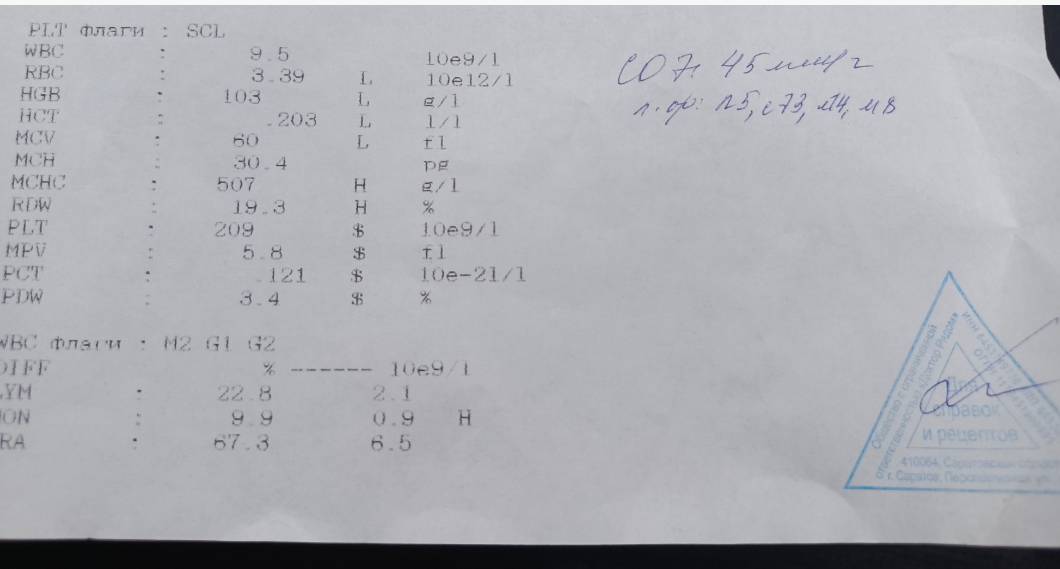 PLT флаги : SCL
WBC : 9.5 10e9/l
RBC : 3.39 L 10e12/l
HGB : 103 L g/l
HCT : .203 L l/l
MCV : 60 L fl
MCH : 30.4 pg
MCHC : 507 H g/l
RDW : 19.3 H %
PLT : 209 $ 10e9/l
MPV : 5.8 $ fl
PCT : .121 $ 10e-21/l
PDW : 3.4 $ %
WBC флаги : M2 G1 G2
DIFF % ------ 10e9/l
LYM : 22.8 2.1
MON : 9.9 0.9 H
RA : 67.3 6.5
СОЭ 45 мм/ч
л.ф: п5, с73, л14, м8
Общество с ограниченной
ответственностью «Доктор Рядом»
Для
справок
и рецептов
410064, Саратовская
г. Саратов,